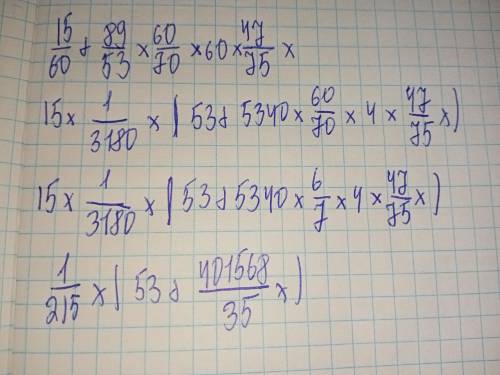 15/60 + 89/53 × 60/70 × 60 × 47/75 x
15 × 1/3180 × (53 + 5340 × 60/70 × 4 × 47/75 x)
15 × 1/3180 × (53 + 5340 × 6/7 × 4 × 47/75 x)
1/215 × (53 + 401568/35 x)